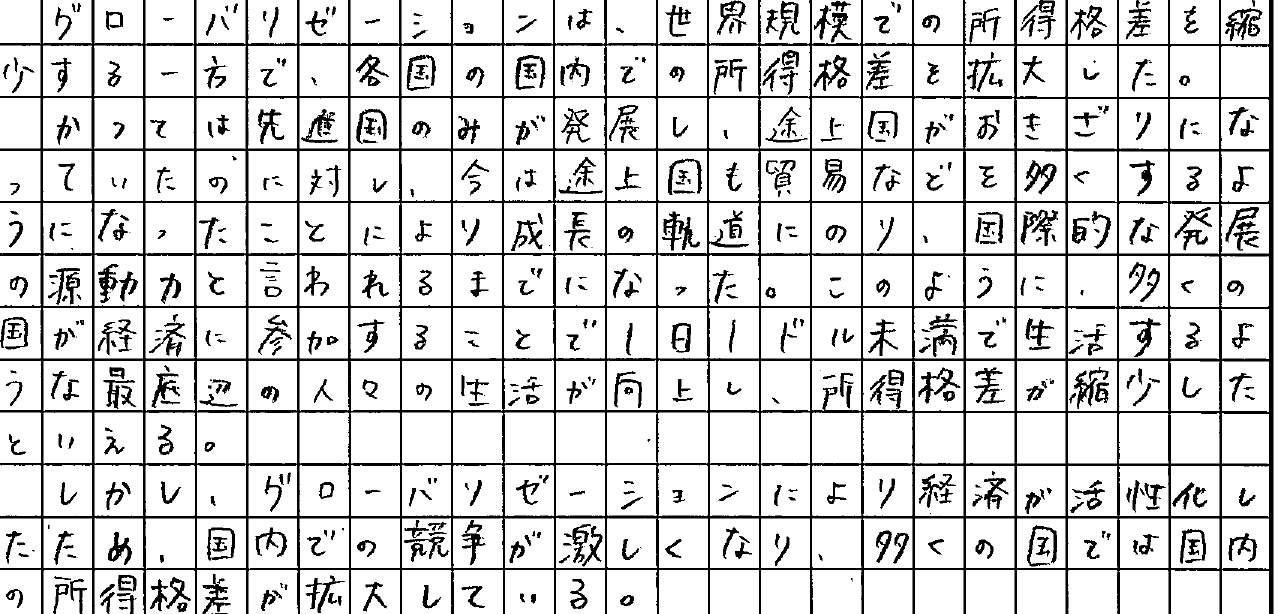 グローバリゼーションは、世界規模での所得格差を縮
少する一方で、各国の国内での所得格差を拡大した。
かつては先進国のみが発展し、途上国がおきざりにな
っていたのに対し、今は途上国も貿易などを多くするよ
うになったことにより成長の軌道にのり、国際的な発展
の源動力と言われるまでになった。このように、多くの
国が経済に参加することで1日1ドル未満で生活するよ
うな最底辺の人々の生活が向上し、所得格差が縮少した
といえる。
しかし、グローバリゼーションにより経済が活性化し
たため、国内での競争が激しくなり、多くの国では国内
の所得格差が拡大している。